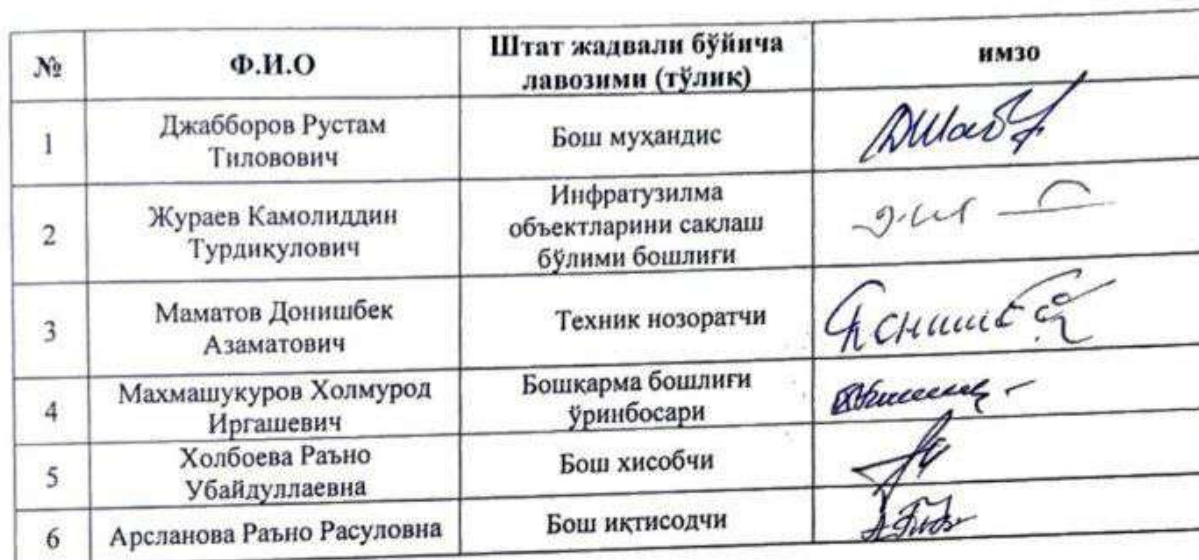 № Ф.И.О Штат жадвали бўйича
лавозими (тўлиқ) имзо
1 Джабборов Рустам
Тиловович Бош муҳандис
2 Жураев Камолиддин
Турдикулович Инфратузилма
объектларини сақлаш
бўлими бошлиғи
3 Маматов Донишбек
Азаматович Техник нозоратчи
4 Махмашукуров Холмурод
Иргашевич Бошқарма бошлиғи
ўринбосари
5 Холбоева Раъно
Убайдуллаевна Бош хисобчи
6 Арсланова Раъно Расуловна Бош иқтисодчи